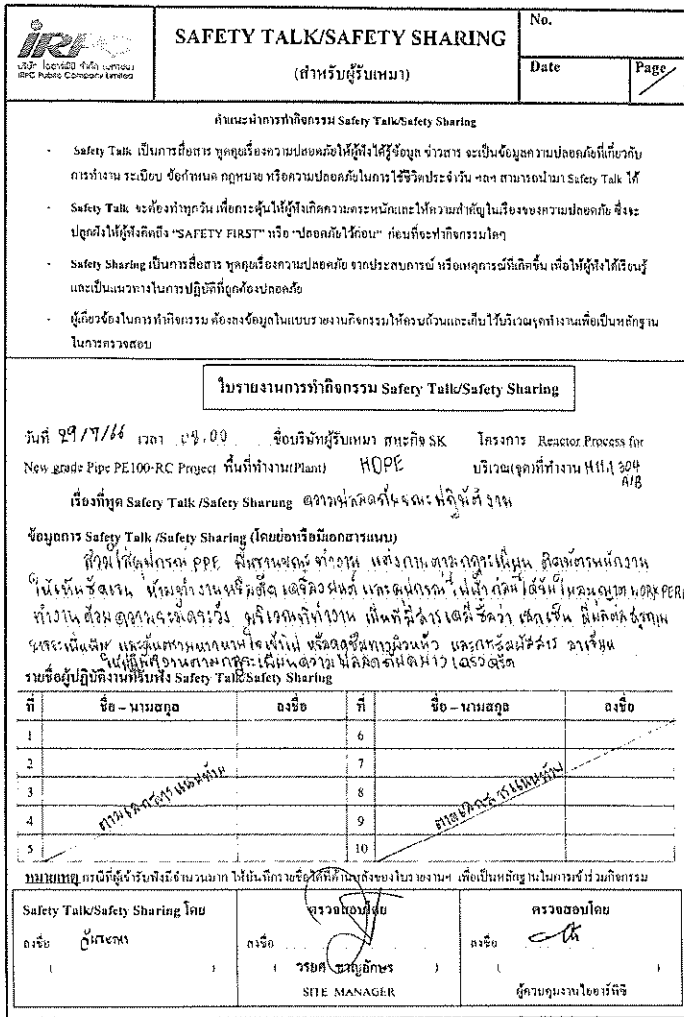 IRPC
บริษัท ไออาร์พีซี จำกัด (มหาชน)
IRPC Public Company Limited
SAFETY TALK/SAFETY SHARING
(สำหรับผู้รับเหมา)
No.
Date
Page
คำแนะนำการทำกิจกรรม Safety Talk/Safety Sharing
- Safety Talk เป็นการสื่อสาร พูดคุยเรื่องความปลอดภัยให้ผู้ฟังได้รู้ข้อมูล ข่าวสาร จะเป็นข้อมูลความปลอดภัยที่เกี่ยวกับ
การทำงาน ระเบียบ ข้อกำหนด กฎหมาย หรือความปลอดภัยในการใช้ชีวิตประจำวัน ฯลฯ สามารถนำมา Safety Talk ได้
- Safety Talk จะต้องทำทุกวัน เพื่อกระตุ้นให้ผู้ฟังเกิดความตระหนักและให้ความสำคัญในเรื่องของความปลอดภัย ซึ่งจะ
ปลูกฝังให้ผู้ฟังคิดถึง "SAFETY FIRST" หรือ "ปลอดภัยไว้ก่อน" ก่อนที่จะทำกิจกรรมใดๆ
- Safety Sharing เป็นการสื่อสาร พูดคุยเรื่องความปลอดภัย จากประสบการณ์ หรือเหตุการณ์ที่เกิดขึ้น เพื่อให้ผู้ฟังได้เรียนรู้
และเป็นแนวทางในการปฏิบัติที่ถูกต้องปลอดภัย
- ผู้เกี่ยวข้องในการทำกิจกรรม ต้องลงข้อมูลในแบบรายงานกิจกรรมให้ครบถ้วนและเก็บไว้บริเวณจุดทำงานเพื่อเป็นหลักฐาน
ในการตรวจสอบ
ใบรายงานการทำกิจกรรม Safety Talk/Safety Sharing
วันที่ 29/7/66 เวลา 08.00 ชื่อบริษัทผู้รับเหมา สหะกิจ SK โครงการ Reactor Process for
New grade Pipe PE100-RC Project พื้นที่ทำงาน(Plant) HDPE บริเวณ(จุด)ที่ทำงาน H111 304 A/B
เรื่องที่พูด Safety Talk /Safety Sharung ความปลอดภัยขณะปฏิบัติงาน
ข้อมูลการ Safety Talk /Safety Sharing (โดยย่อหรือมีเอกสารแนบ)
สวมใส่อุปกรณ์ PPE พื้นฐานขณะทำงาน แต่งกายตามกฎระเบียบ ติดบัตรพนักงาน
ให้เห็นชัดเจน ห้ามทำงานหรือติด เครื่องยนต์ และอุปกรณ์ไฟฟ้า ก่อนได้รับใบอนุญาต WORK PERMIT
ทำงานด้วยความระมัดระวัง บริเวณที่ทำงาน เป็นที่มีสารเคมีชื่อว่า เฮกเซน
และการสัมผัสสาร
ให้ปฏิบัติงานตามกฎระเบียบความปลอดภัยอย่างเคร่งครัด
รายชื่อผู้ปฏิบัติงานที่รับฟัง Safety Talk/Safety Sharing
ที่ ชื่อ – นามสกุล ลงชื่อ ที่ ชื่อ – นามสกุล ลงชื่อ
1 6
2 7
3 8
4 9
5 10
ตามเอกสารแนบท้าย ตามเอกสารแนบท้าย
หมายเหตุ กรณีที่ผู้เข้ารับฟังมีจำนวนมาก ให้บันทึกรายชื่อได้ที่ด้านหลังของใบรายงานฯ เพื่อเป็นหลักฐานในการเข้าร่วมกิจกรรม
Safety Talk/Safety Sharing โดย ตรวจสอบโดย ตรวจสอบโดย
ลงชื่อ ลงชื่อ ลงชื่อ
( ) ( วรยศ ชาญอักษร ) ( )
SITE MANAGER ผู้ควบคุมงานไออาร์พีซี